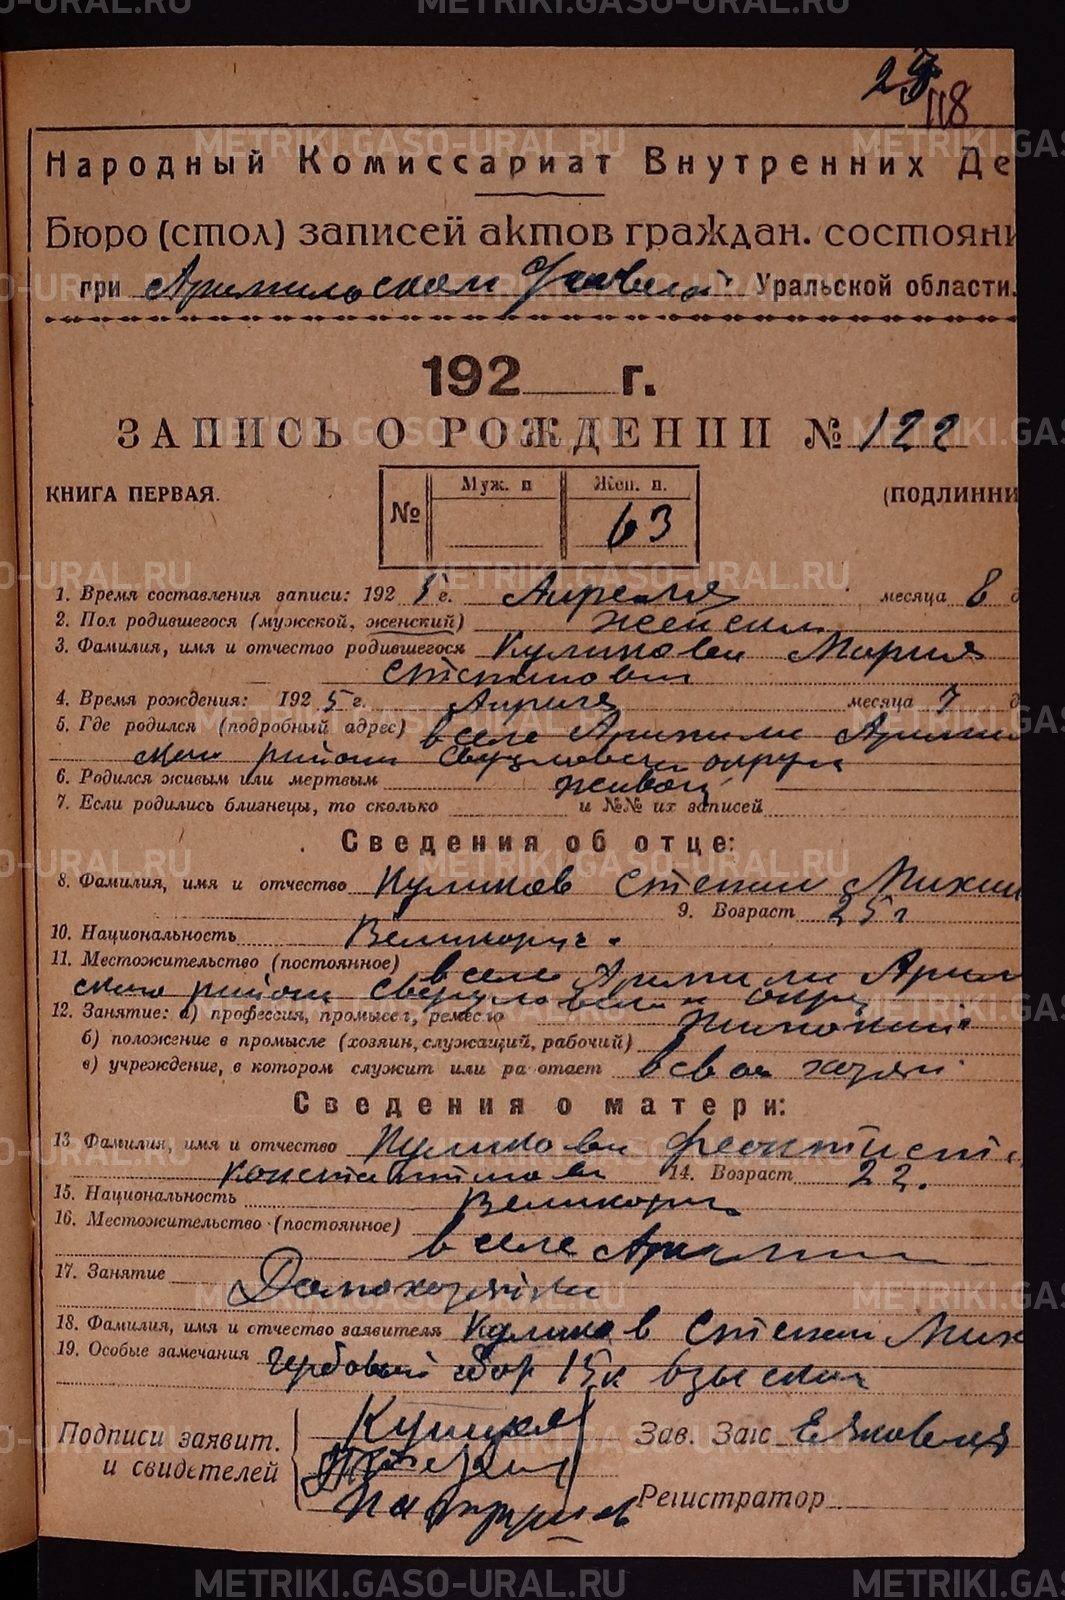 118
Народный Комиссариат Внутренних Де
Бюро (стол) записей актов граждан. состояни
при Арамильском Уральской области.
192 г.
ЗАПИСЬ О РОЖДЕНИИ № 122
КНИГА ПЕРВАЯ. (ПОДЛИННИ
№ Муж. п Жен. п.
63
1. Время составления записи: 192 5 г. Апреля месяца 8 д
2. Пол родившегося (мужской, женский) женский
3. Фамилия, имя и отчество родившегося Куликова Мария
Степановна
4. Время рождения: 192 5 г. Апреля месяца 7 д
5. Где родился (подробный адрес) в селе Арамили Арамил
ского района Свердловского округа
6. Родился живым или мертвым живой
7. Если родились близнецы, то сколько и №№ их записей
Сведения об отце:
8. Фамилия, имя и отчество Куликов Степан Михаил
9. Возраст 25 г
10. Национальность Великорус.
11. Местожительство (постоянное) в селе Арамили Арамил
ского района Свердловского окру
12. Занятие: а) профессия, промысел, ремесло
б) положение в промысле (хозяин, служащий, рабочий)
в) учреждение, в котором служит или ра отает в свое хозяй
Сведения о матери:
13. Фамилия, имя и отчество Куликова Феоктист
Константинова 14. Возраст 22.
15. Национальность Великорус
16. Местожительство (постоянное)
в селе Арамили
17. Занятие Домохозяйка
18. Фамилия, имя и отчество заявителя Куликов Степан Мих
19. Особые замечания Гербовый сбор 15 к взыскан
Подписи заявит.
и свидетелей
Зав. Загс Е Яковлев
Регистратор
METRIKI.GASO-URAL.RU